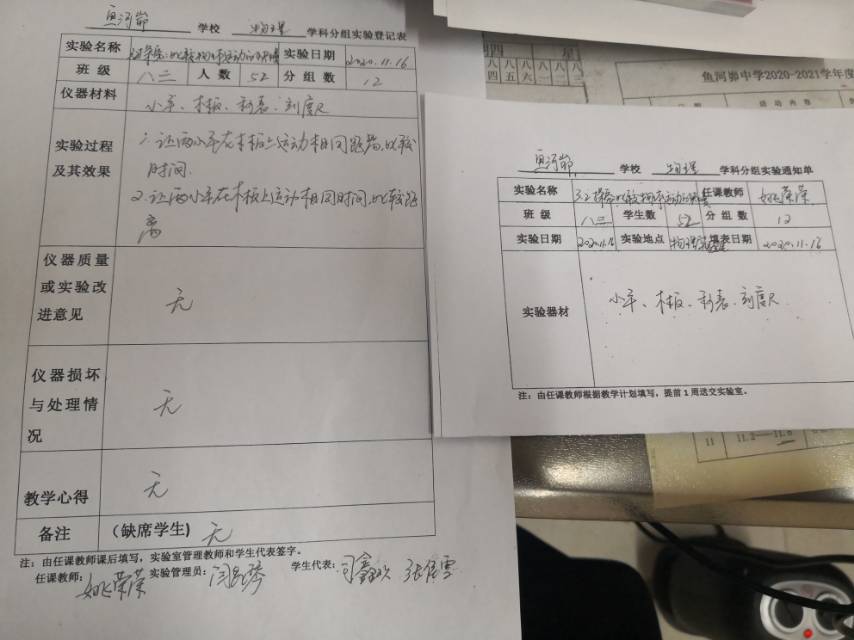 鱼河峁 学校 物理 学科分组实验登记表
实验名称 比较物体运动的快慢 实验日期 2020.11.16
班级 八二 人数 52 分组数 12
仪器材料 小车、木板、秒表、刻度尺
实验过程及其效果
1.让两小车在木板上运动相同距离,比较
时间.
2.让两小车在木板上运动相同时间,比较距
离
仪器质量
或实验改
进意见
无
仪器损坏
与处理情
况
无
教学心得 无
备注 (缺席学生) 无
注:由任课教师课后填写,实验室管理教师和学生代表签字。
任课教师: 姚荣荣 实验管理员: 学生代表:
鱼河峁中学2020-2021学年度
鱼河峁 学校 物理 学科分组实验通知单
实验名称 3.2探究比较物体运动的快慢 任课教师 姚荣荣
班级 八二 学生数 52 分组数 12
实验日期 2020.11.16 实验地点 物理实验室 填表日期 2020.11.16
实验器材 小车、木板、秒表、刻度尺
注:由任课教师根据教学计划填写,提前1周送交实验室。
11 11.2—11.8